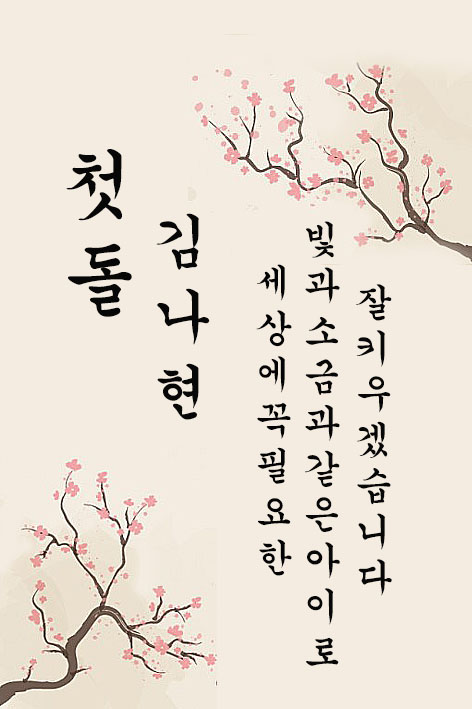 첫돌
김나현
세상에꼭필요한
빛과소금과같은아이로
잘키우겠습니다